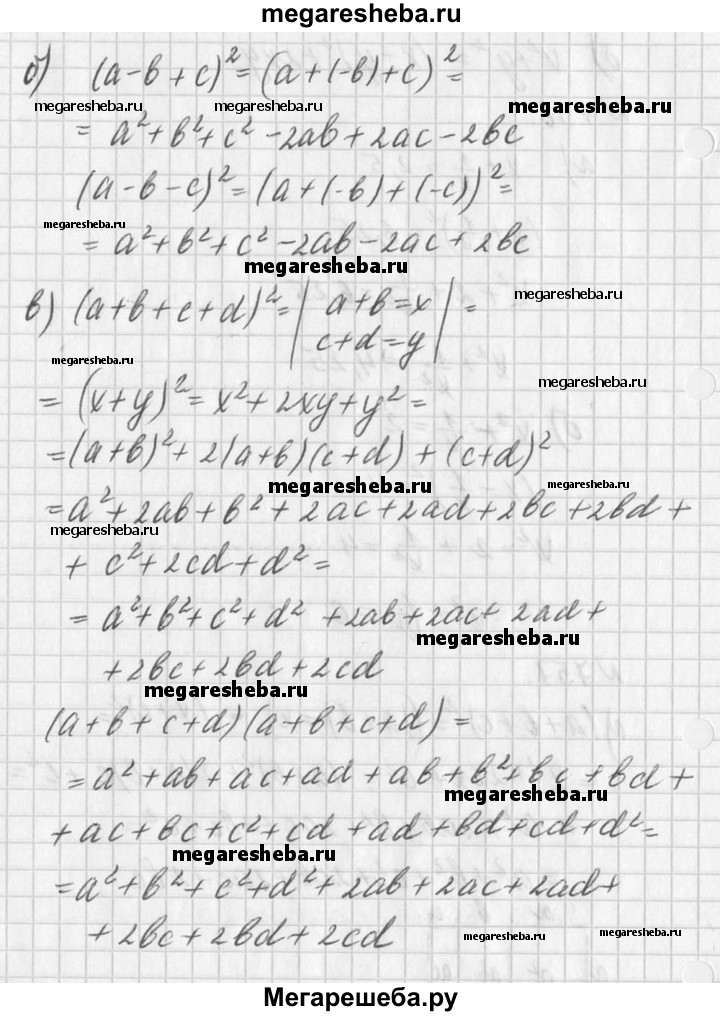 megaresheba.ru
б) (a-b+c)²=(a+(-b)+c)²=
megaresheba.ru megaresheba.ru megaresheba.ru
= a²+b²+c²-2ab+2ac-2bc
(a-b-c)²=(a+(-b)+(-c))²=
megaresheba.ru
= a²+b²+c²-2ab-2ac+2bc
megaresheba.ru
в) (a+b+c+d)²=| a+b=x | =
megaresheba.ru
c+d=y
megaresheba.ru
megaresheba.ru
= (x+y)²=x²+2xy+y²=
=(a+b)²+2(a+b)(c+d)+(c+d)²
megaresheba.ru megaresheba.ru
=a²+2ab+b²+2ac+2ad+2bc+2bd+
megaresheba.ru
+ c²+2cd+d²=
= a²+b²+c²+d² +2ab+2ac+2ad+
megaresheba.ru
+2bc+2bd+2cd
megaresheba.ru
(a+b+c+d)(a+b+c+d)=
megaresheba.ru
=a²+ab+ac+ad+ab+b²+bc+bd+
megaresheba.ru
+ac+bc+c²+cd+ad+bd+cd+d²=
megaresheba.ru
=a²+b²+c²+d²+2ab+2ac+2ad+
+2bc+2bd+2cd
megaresheba.ru megaresheba.ru
Мегарешеба.ру